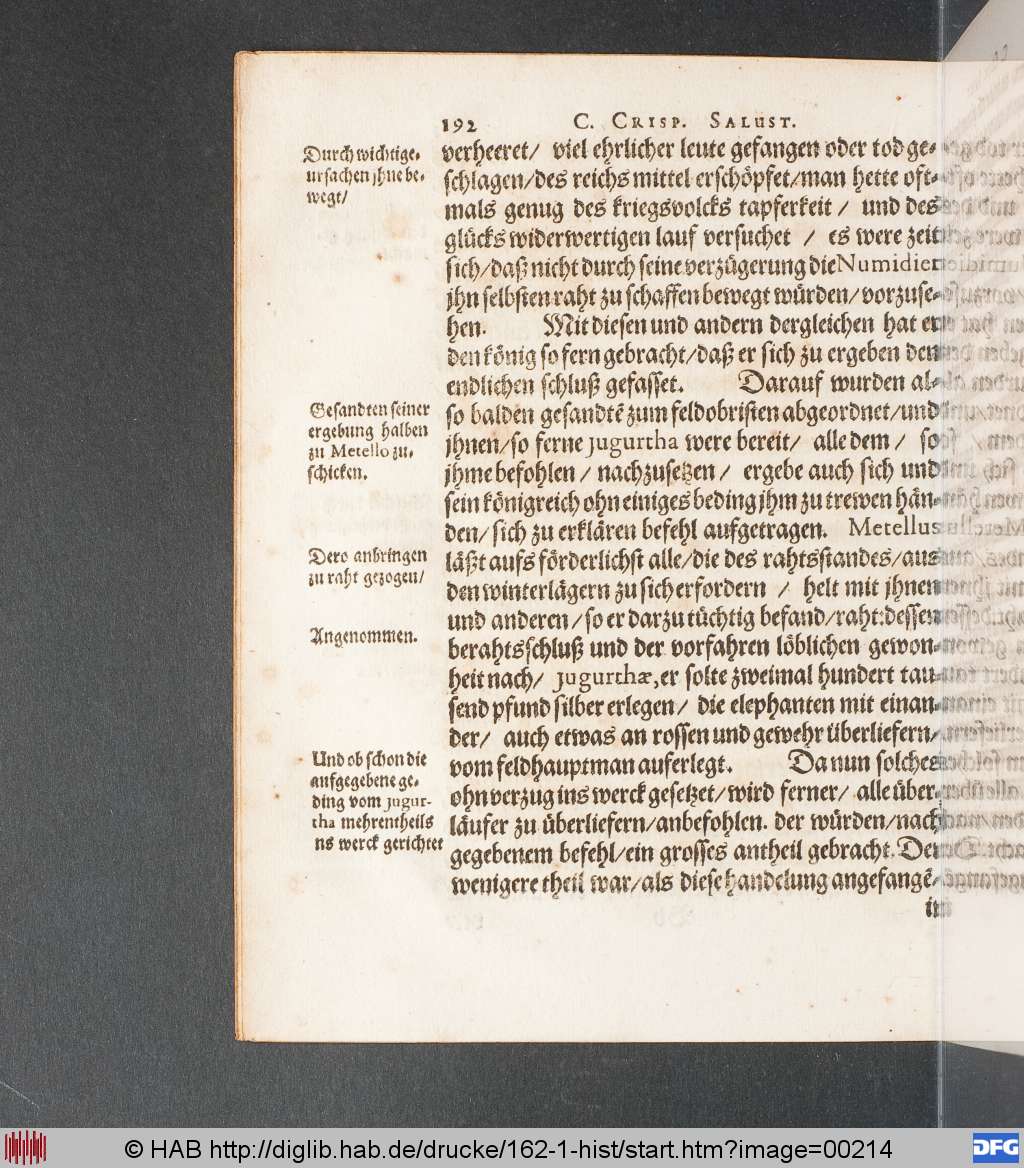 192 C. CRISP. SALUST.
Durch wichtige
ursachen jhne be-
wegt/
verheeret/ viel ehrlicher leute gefangen oder tod ge-
schlagen/des reichs mittel erschöpfet/man hette oft-
mals genug des kriegsvolcks tapferkeit / und des
glücks widerwertigen lauf versuchet / es were zeit
sich/daß nicht durch seine verzügerung die Numidier
jhn selbsten raht zu schaffen bewegt würden/vorzuse-
hen. Mit diesen und andern dergleichen hat er
den könig so fern gebracht/daß er sich zu ergeben den
endlichen schluß gefasset. Darauf wurden al-
Gesandten seiner
ergebung halben
zu Metello zu-
schicken.
so balden gesandtē zum feldobristen abgeordnet/und
jhnen/so ferne jugurtha were bereit/ alle dem / so
jhme befohlen / nachzusetzen / ergebe auch sich und
sein königreich ohn einiges beding jhm zu trewen hän-
den/sich zu erklären befehl aufgetragen. Metellus
Dero anbringen
zu raht gezogen/
läßt aufs förderlichst alle/die des rahtsstandes/aus
den winterlägern zu sich erfordern / helt mit jhnen
und anderen/so er darzu tüchtig befand/raht:dessen
Angenommen.
berahtsschluß und der vorfahren löblichen gewon-
heit nach/ jugurthæ,er solte zweimal hundert tau-
send pfund silber erlegen/ die elephanten mit einan-
der/ auch etwas an rossen und gewehr überliefern/
Und ob schon die
aufgegebene ge-
ding vom jugur-
tha mehrentheils
ns werck gerichtet
vom feldhauptman auferlegt. Da nun solches
ohn verzug ins werck gesetzet/wird ferner/ alle über-
läufer zu überliefern/anbefohlen. der würden/nach
gegebenem befehl/ein grosses antheil gebracht. Der
wenigere theil war/als diese handelung angefangē/
in
© HAB http://diglib.hab.de/drucke/162-1-hist/start.htm?image=00214
DFG